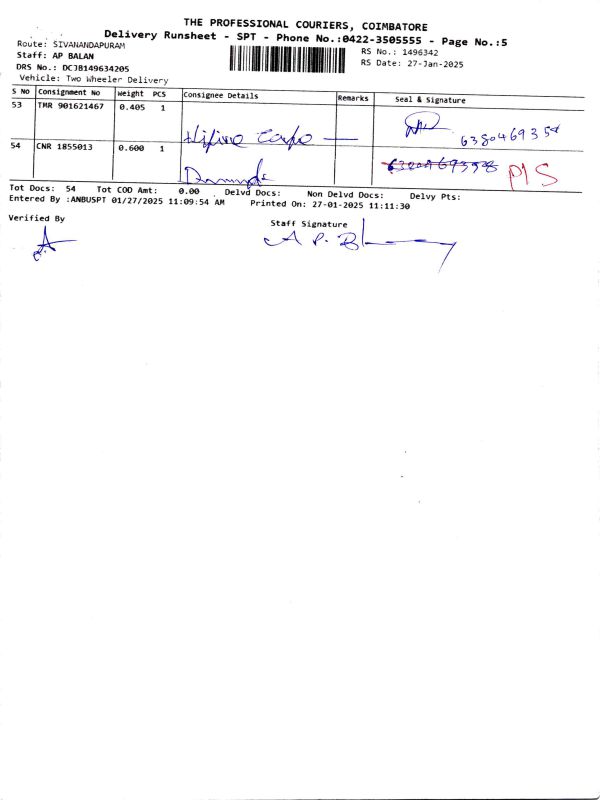 THE PROFESSIONAL COURIERS, COIMBATORE
Delivery Runsheet - SPT - Phone No.:0422-3505555 - Page No.:5
Route: SIVANANDAPURAM
RS No.: 1496342
Staff: AP BALAN
RS Date: 27-Jan-2025
DRS No.: DCJB149634205
Vehicle: Two Wheeler Delivery
S No Consignment No Weight PCS Consignee Details Remarks Seal & Signature
53 TMR 901621467 0.405 1
638046935
54 CNR 1855013 0.600 1
P1S
Tot Docs: 54 Tot COD Amt: 0.00 Delvd Docs: Non Delvd Docs: Delvy Pts:
Entered By :ANBUSPT 01/27/2025 11:09:54 AM Printed On: 27-01-2025 11:11:30
Verified By
Staff Signature
A P. B